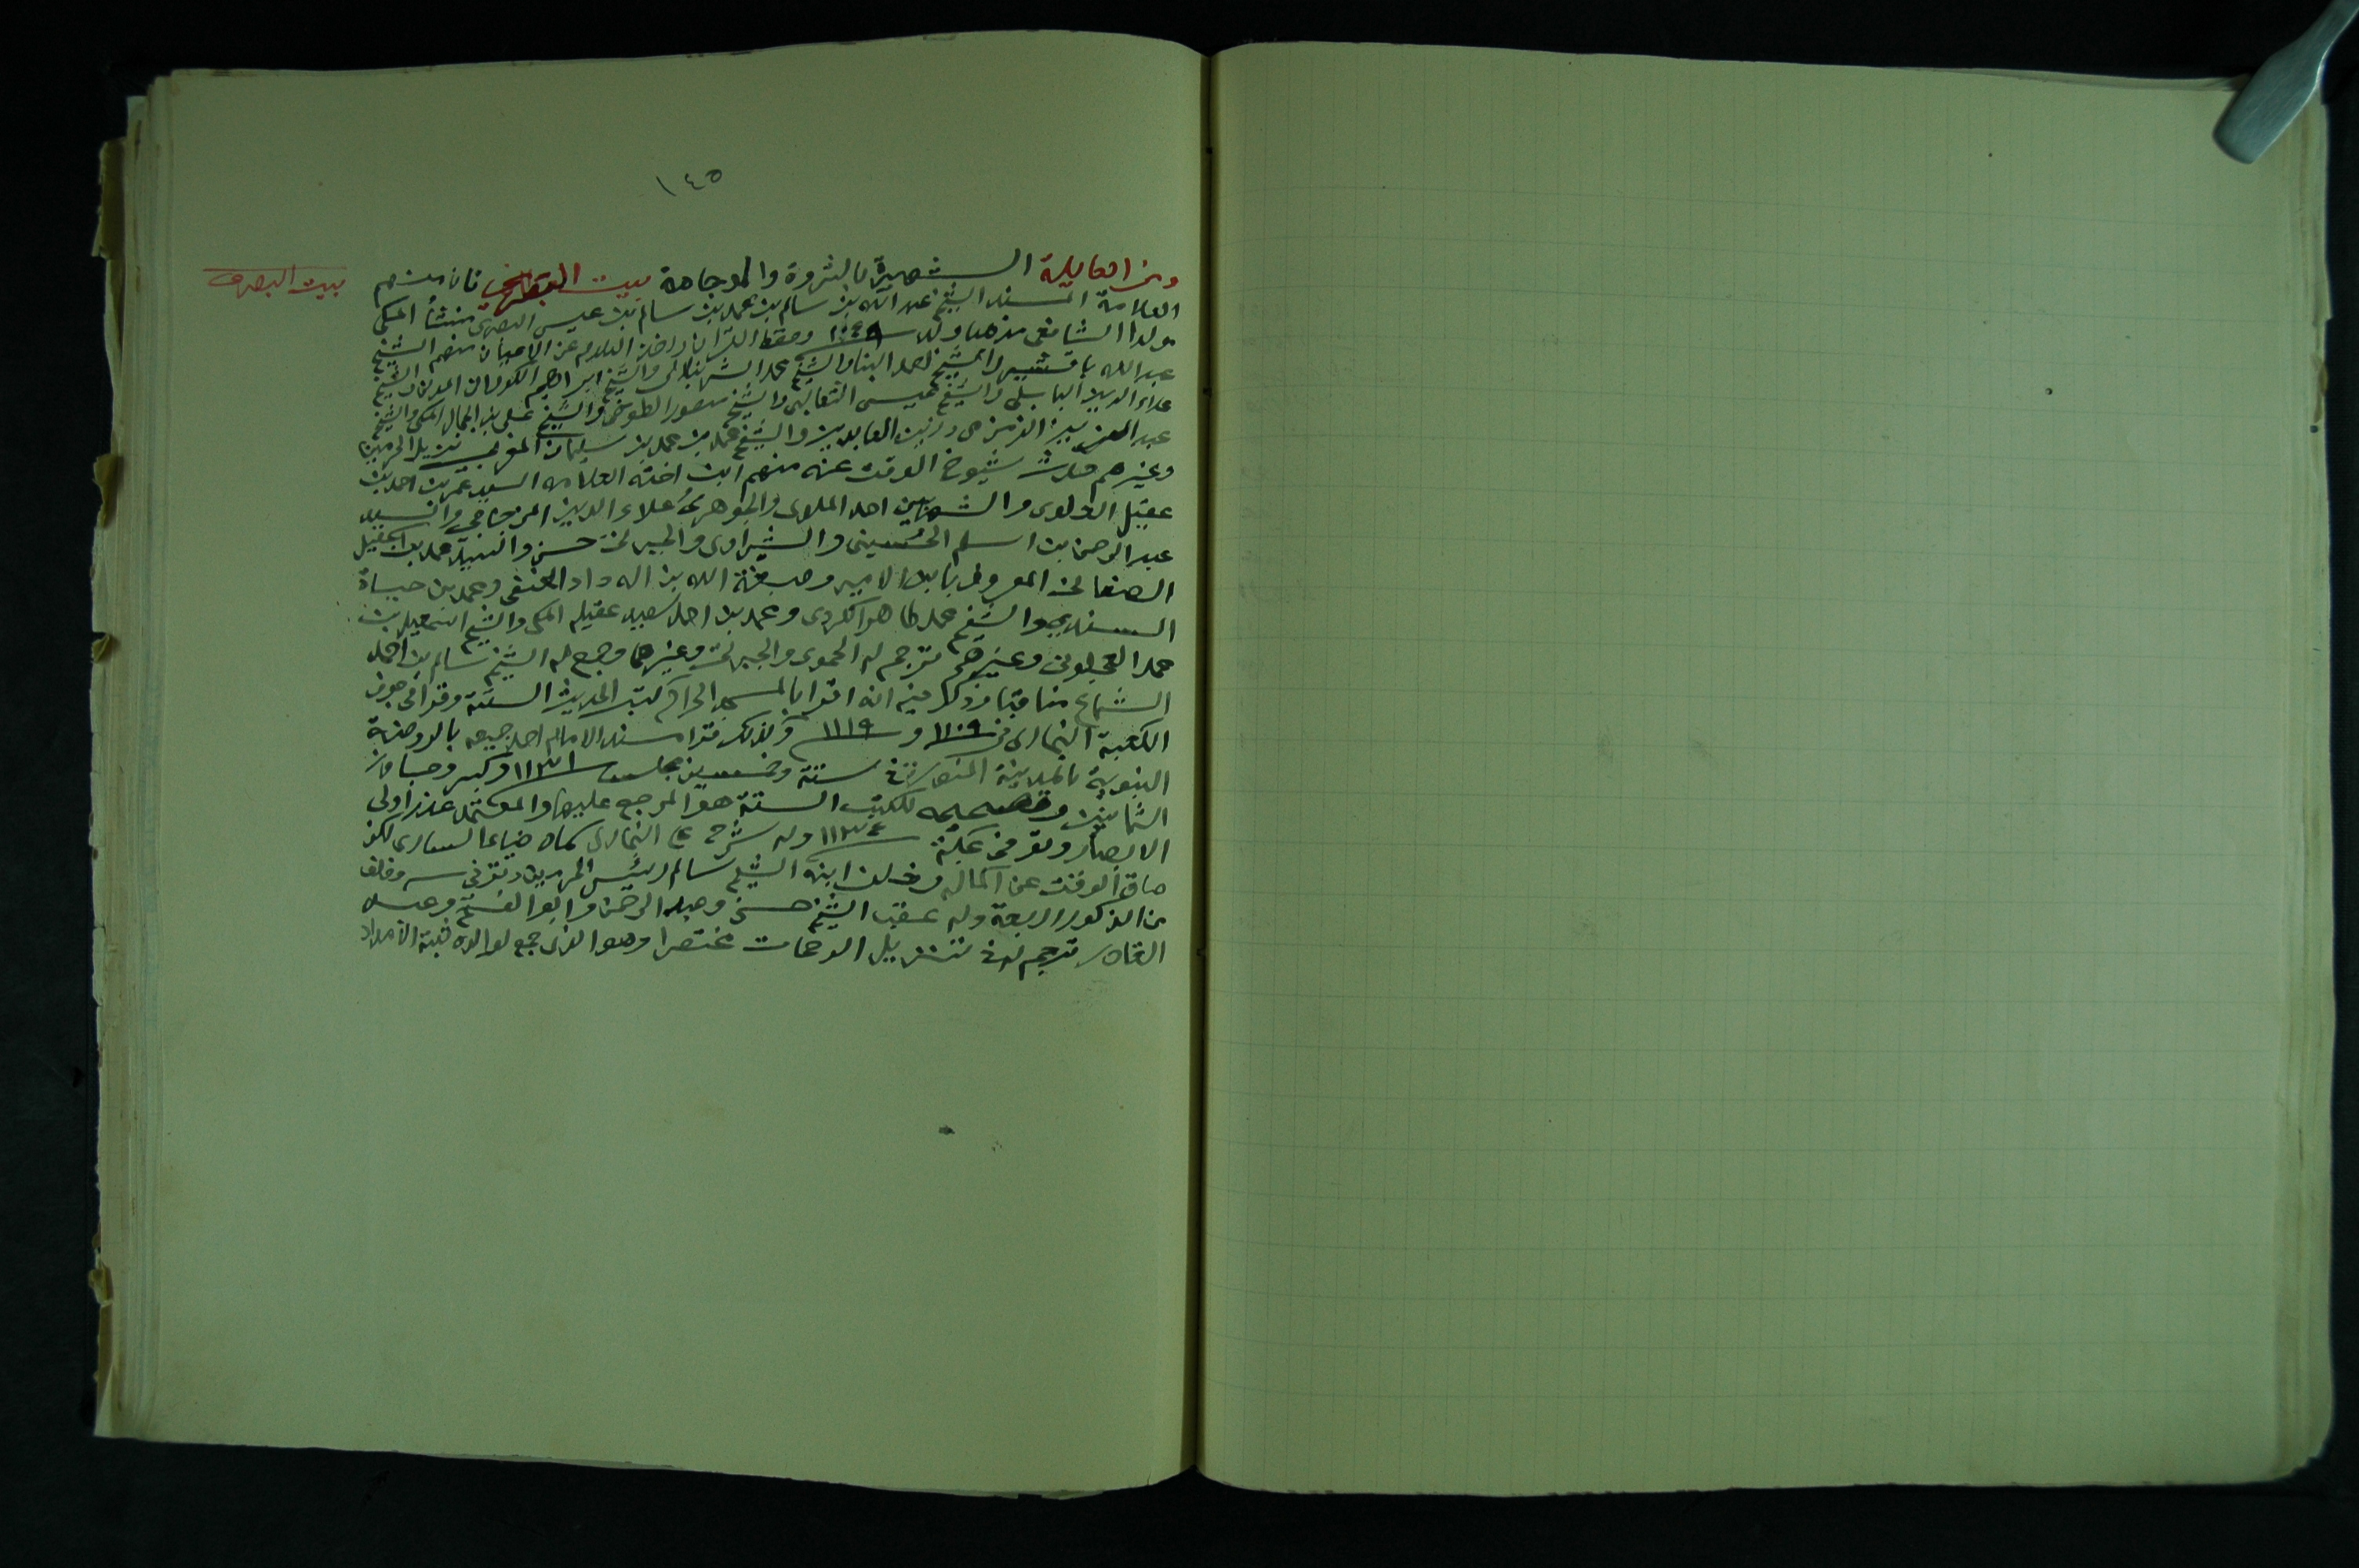 ١٤٥
بيت البصرى
ومن العايلة الشهيرة بالثروة والوجاهة بيت البصرى فان منهم
العلامة المسند الشيخ عبد الله بن سالم بن محمد بن سالم بن عيسى البصرى منشأ المكى
مولدا الشافعى مذهبا ولد ١٠٤٩ وحفظ القران واخذ العلوم عن الاعيان منهم الشيخ
عبد الله باقشير والشيخ احمد البنا والشيخ محمد الشرنبلالى والشيخ ابراهيم الكورانى المدنى والشيخ
علاء الدين البابلى والشيخ عيسى الثعالبى والشيخ منصور الطوخى والشيخ على بن الجمال المكى والشيخ
عبد العزيز الزمزمى وزين العابدين والشيخ محمد بن محمد بن سليمان المغربى نزيل الحرمين
وغيرهم حدث شيوخ الوقت عنه منهم ابن اخته العلامه السيد عمر بن احمد بن
عقيل العلوى والشهابين احمد الملوى والجوهرى وعلاء الدين المزجاجى والسيد
عبد الرحمن بن اسلم الحسينى والشبراوى والجبرتى حسن والسيد محمد بن اسمعيل
الصنعانى المعروف بابن الامير وصبغة الله بن اله داد الحنفى ومحمد بن حياة
السندى والشيخ محمد طاهر الكردى ومحمد بن احمد سعيد عقيله المكى والشيخ اسمعيل بن
محمد العجلونى وغيرهم ترجم له الحموى والجبرتى وغيرهما وجمع له الشيخ سالم بن احمد
الشماع مناقبا وذكر فيه انه اقرا بالمسجد الحرام كتب الحديث الستة وقرا فى جوف
الكعبة البخارى فى ١١٠٩ و ١١١٩ وكذلك قرا مسند الامام احمد جميعه بالروضة
النبوية بالمدينة المنورة فى ستة وخمسين مجلس ١١٣١ وكبر وجاوز
الثمانين وتصحيحه للكتب الستة هو المرجع عليها والمعتمد عند اولى
الابصار وتوفى بمكة ١١٣٤ وله شرح على البخارى سماه ضياء السارى لكن
ضاق الوقت عن اكماله وخلف ابنه الشيخ سالم رئيس الحرمين وتوفى سنه وخلف
من الذكور اربعة وله عقب الشيخ حسن وعبد الرحمن وابو الفتح وعبد
القادر ترجم له فى تنزيل الرحمات مختصرا وهو الذى جمع لوالده ثبته الامداد